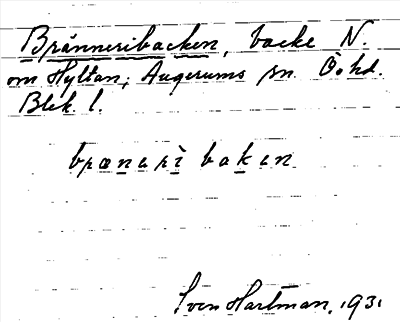 Bränneribacken, backe N.
om Hyltan; Augerums sn. Ö. hd.
Blek. l.
brænarì bakan
Sven Hartman, 1931